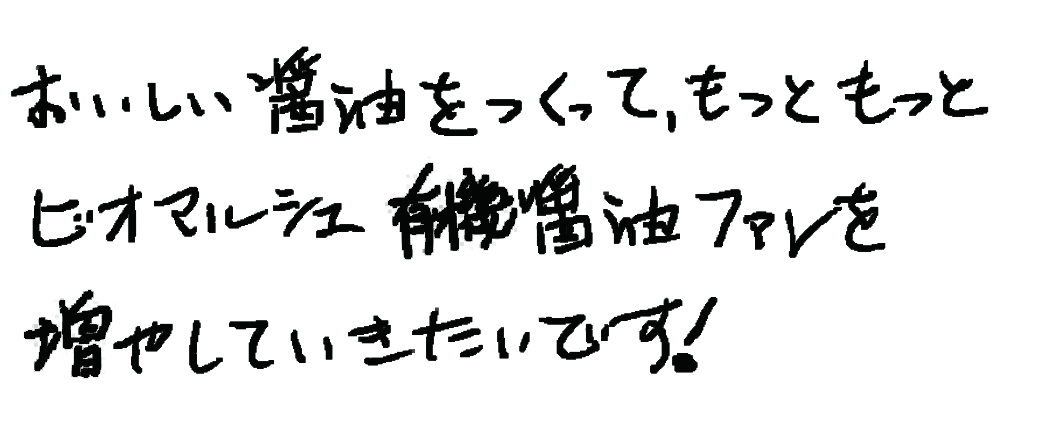 おいしい醤油をつくって、もっともっと
ビオマルシェ有機醤油ファンを
増やしていきたいです!